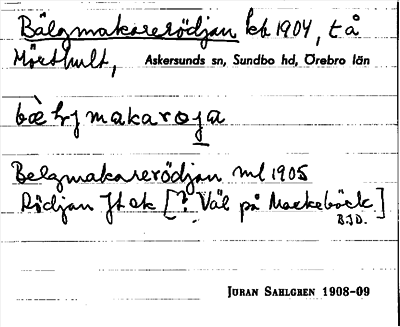 Bälgmakarerödjan kb 1904, t å
Mörthult, Askersunds sn, Sundbo hd, Örebro län
bæ̀lrjmakaroja
Belgmakarerödjan ml 1905
Rödjan Jb ek [? Väl på Markebäck]
B.J.D.
JURAN SAHLGREN 1908-09